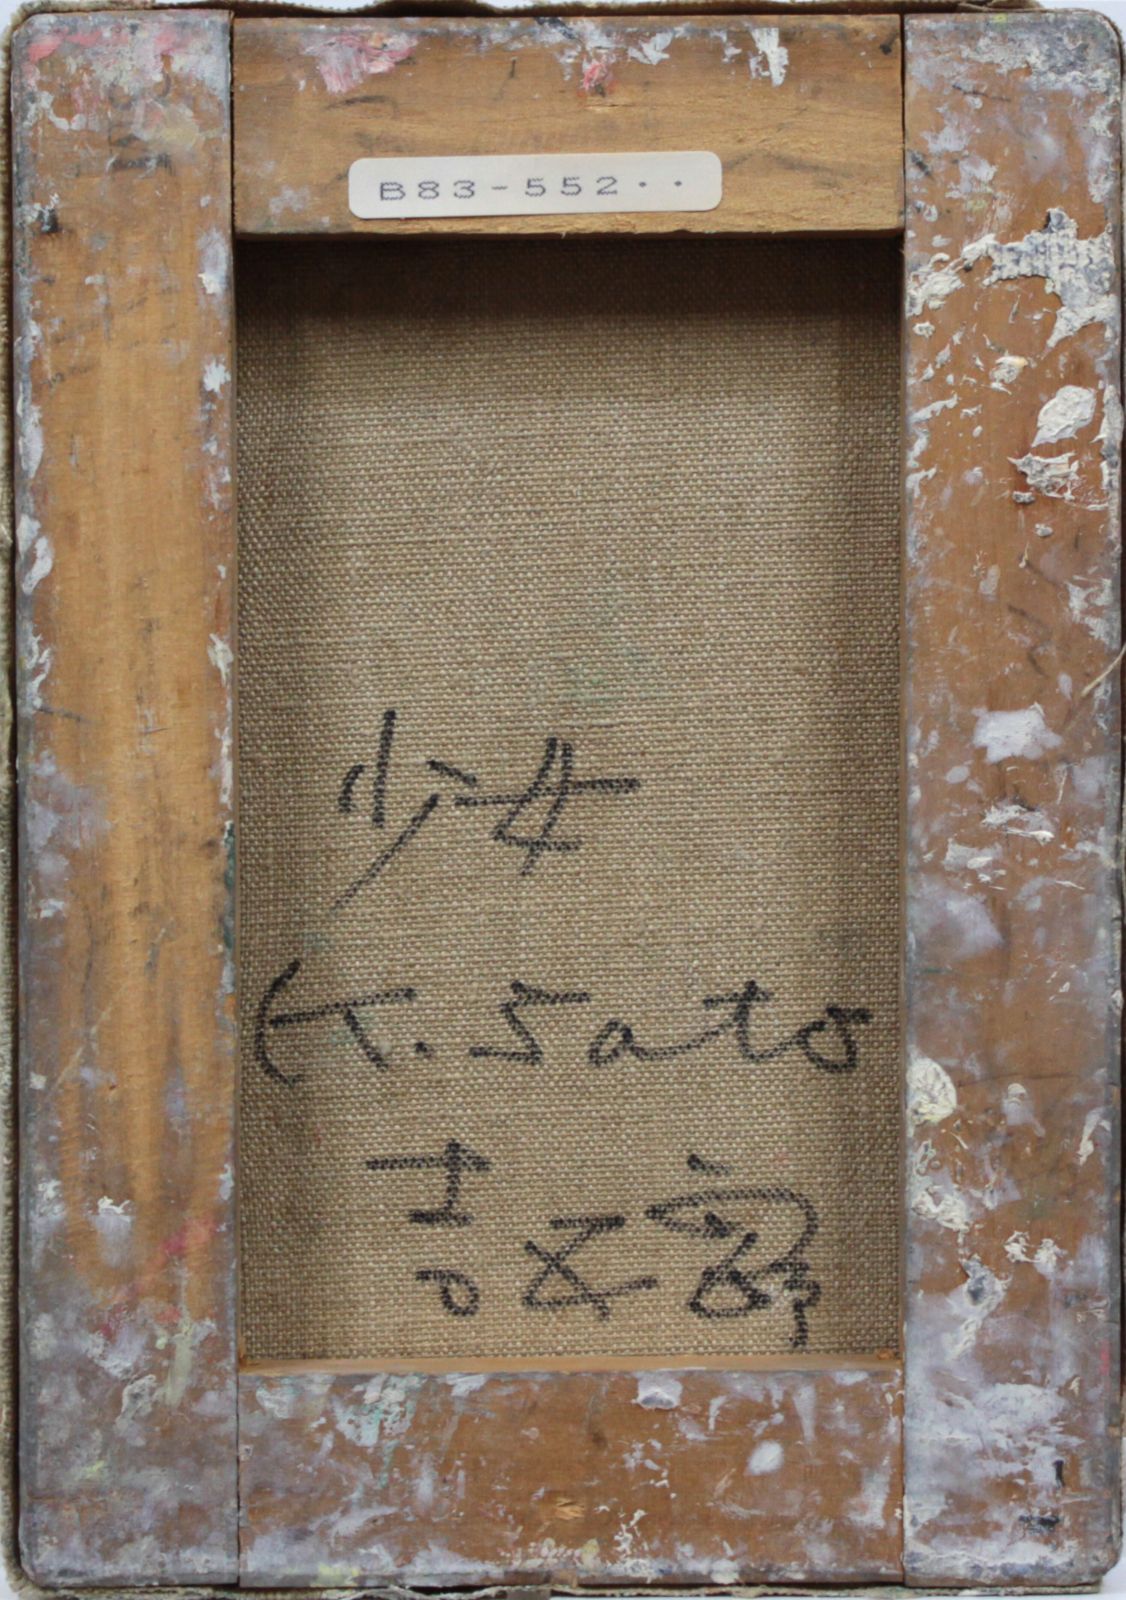 B83-552··
少女
K. Sato
吉五郎